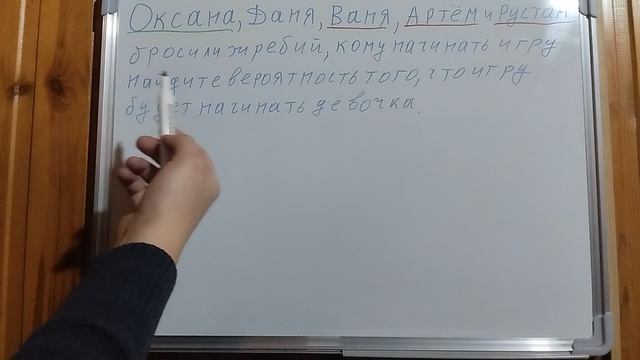 Оксана, Даня, Ваня, Артём и Рустам
бросили жребий, кому начинать игру
найдите вероятность того, что игру
будет начинать девочка.